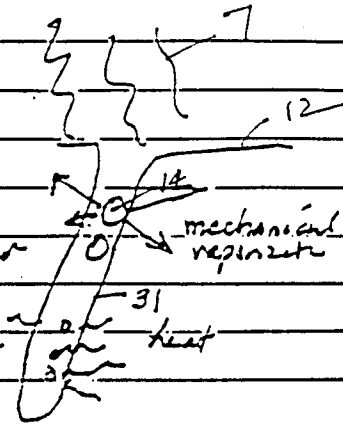 7
12
14
mechanical
31
heat